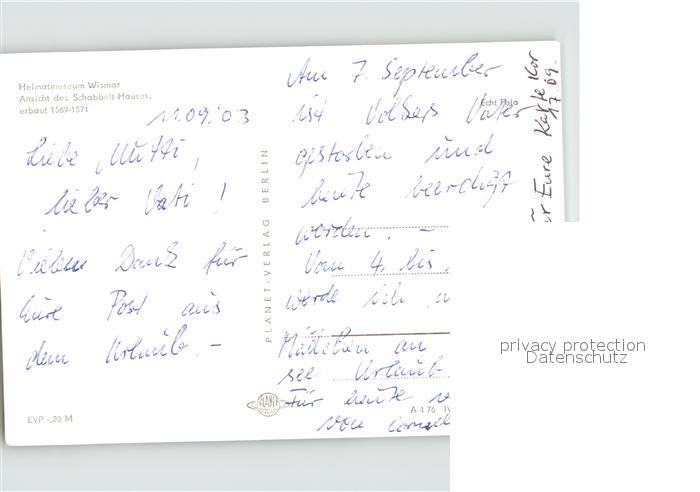 Heimatmuseum Wismar
Ansicht des Schabbelt-Hauses,
erbaut 1569-1571
11.09.'03
Liebe Mutti,
lieber Vati!
Vielen Dank für
Eure Post aus
dem Urlaub. –
EVP -,20 M
PLANET-VERLAG BERLIN
PLANET
Am 7. September
Echt Foto
ist Volkers Vater
gestorben und
heute beerdigt
worden. –
Vom 4. bis
werde ich
Mädchen an
see Urlaub
Für heute
von
A 4 76
Eure Karte
privacy protection
Datenschutz